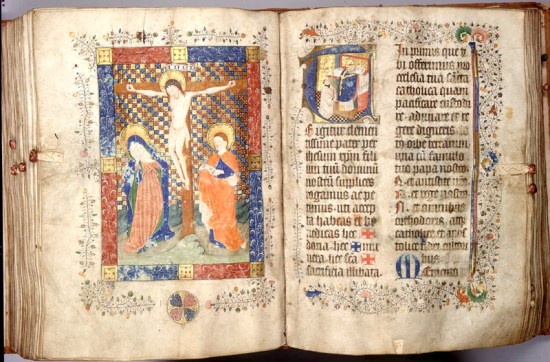 T
E igitur clemen
tissime pater per
ihesum xpm fili
um tuū dominū
nostrū supplices
rogamus ac pe
timus uti accep
ta habeas et be
nedicas hec
dona hec mu
nera hec scā
sacrificia illibata
In primis que ti
bi offerimus pro
ecclesia tua sācta
catholica quam
pacificare custodi
re adunare et re
gere digneris
toto orbe terrarum
una cū famulo
tuo papa nostro
N et antistite nro
N et omnibus
orthodoxis atq
catholice et apos
tolice fidei cultori
bus
Memento